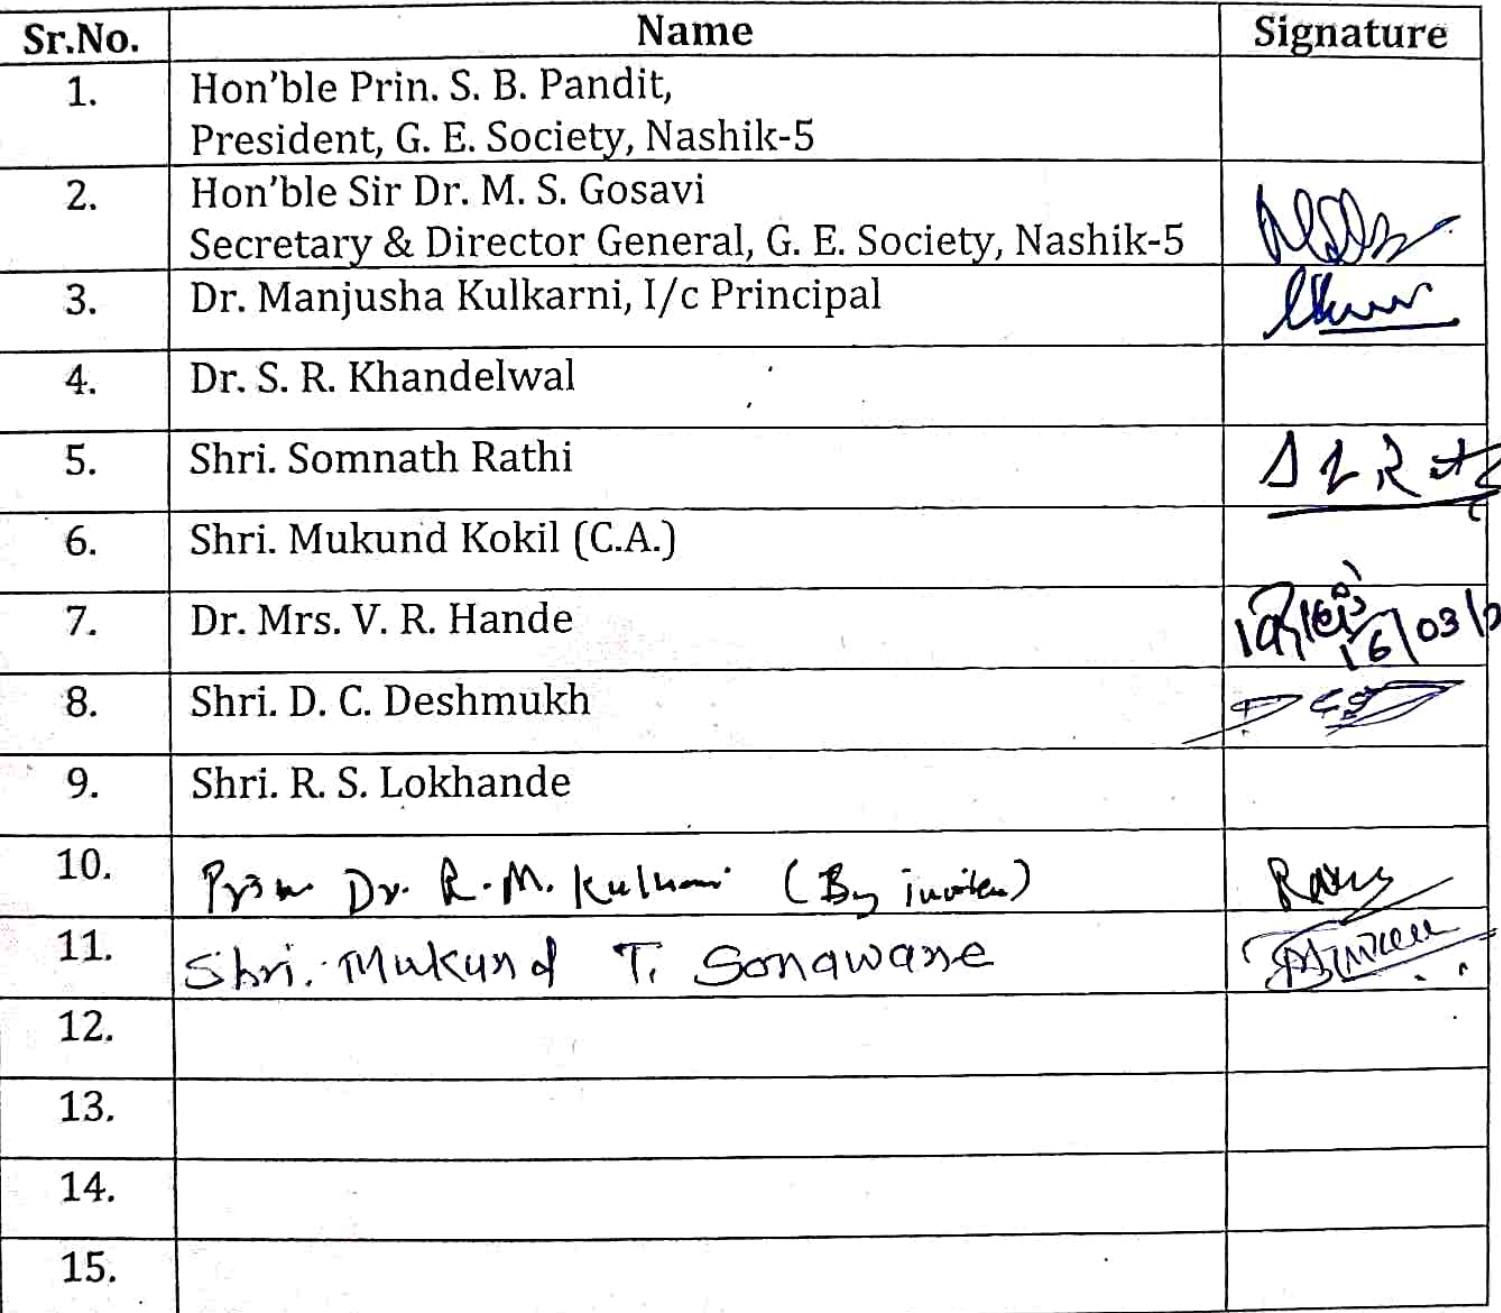 Sr.No. Name Signature
1. Hon'ble Prin. S. B. Pandit,
President, G. E. Society, Nashik-5
2. Hon'ble Sir Dr. M. S. Gosavi
Secretary & Director General, G. E. Society, Nashik-5
3. Dr. Manjusha Kulkarni, I/c Principal
4. Dr. S. R. Khandelwal
5. Shri. Somnath Rathi
6. Shri. Mukund Kokil (C.A.)
7. Dr. Mrs. V. R. Hande 16/03/
8. Shri. D. C. Deshmukh
9. Shri. R. S. Lokhande
10. Dr. R. M. (By
11. Shri. Mukund T. Sonawane
12.
13.
14.
15.